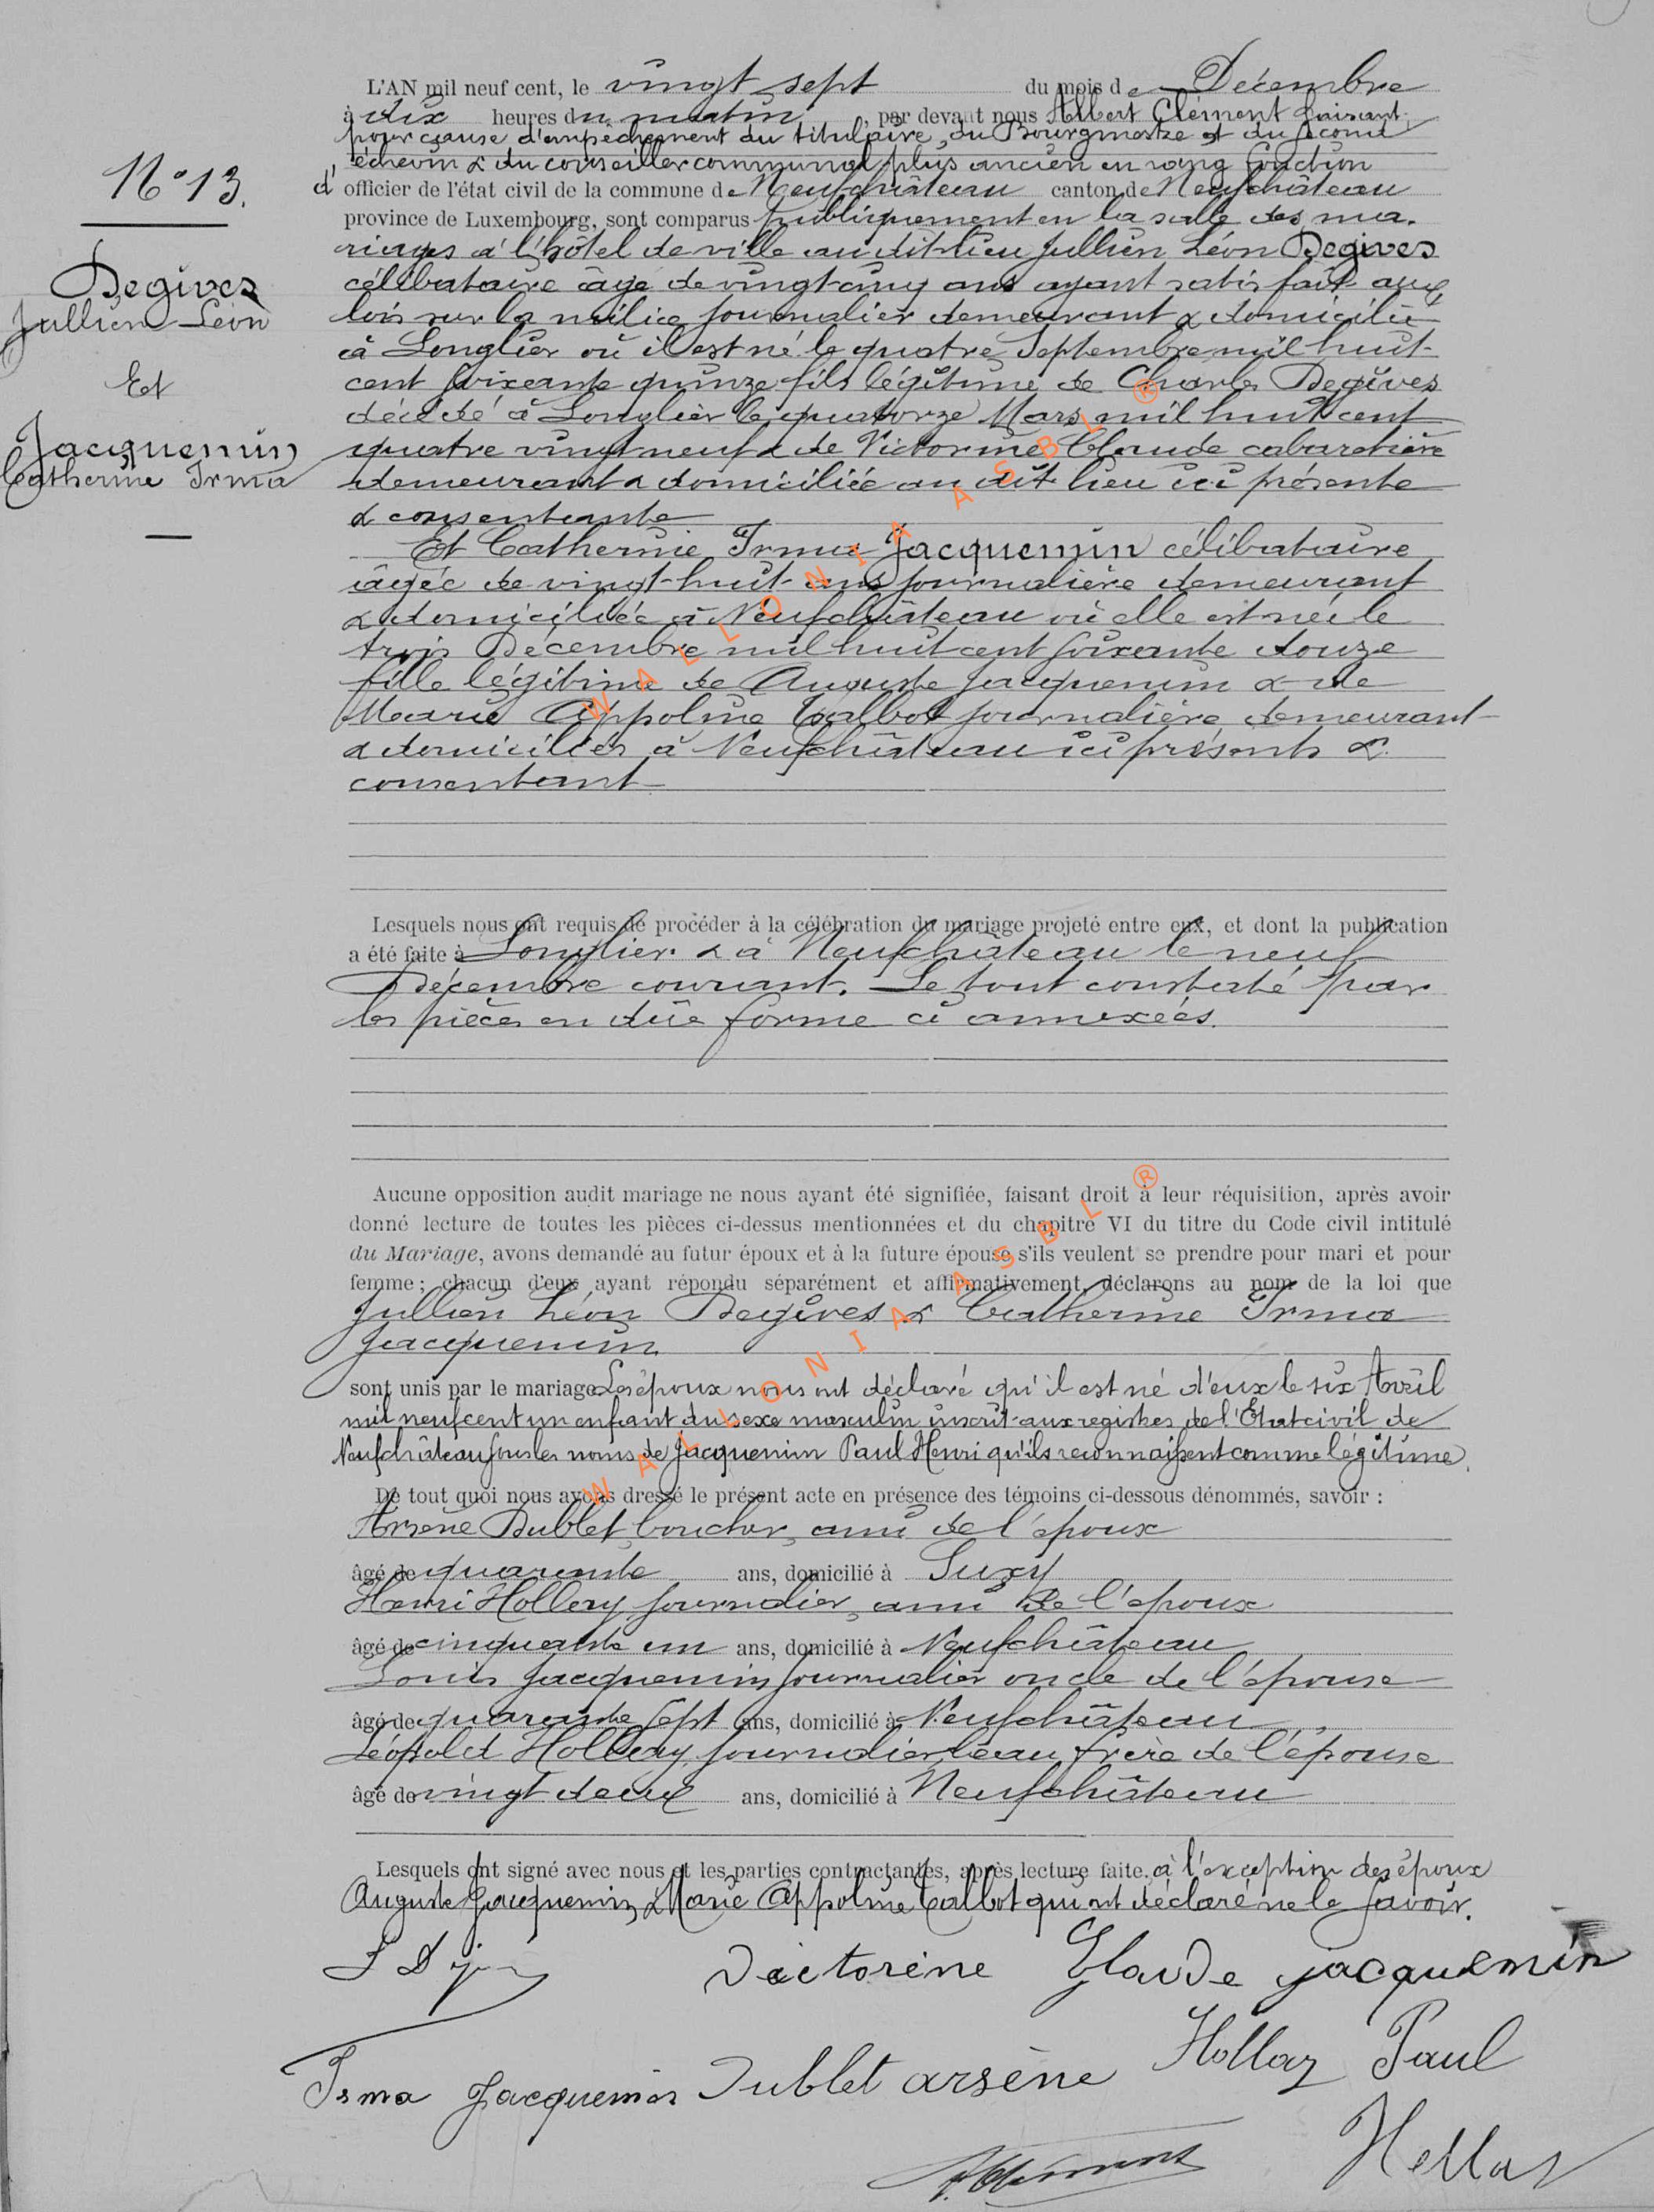 L'AN mil neuf cent, le vingt sept du mois de Décembre
à dix heures du matin, par devant nous Albert Clément faisant
pour cause d'empêchement du titulaire, du Bourgmestre et du second
échevin & du conseiller communal plus ancien en rang fonction
d' officier de l'état civil de la commune de Neufchâteau canton de Neufchâteau
province de Luxembourg, sont comparus publiquement en la salle des ma-
riages à l'hôtel de ville au dit lieu Jullien Léon Degives
célibataire âgé de vingt-cinq ans ayant satisfait aux
lois sur la milice journalier demeurant & domicilié
à Longlier où il est né le quatre Septembre mil huit-
cent soixante quinze fils légitime de Charles Degives
décédé à Longlier le quatorze Mars mil huit cent
quatre vingt neuf & de Victorine Claude cabaretière
demeurant & domiciliée au dit lieu ici présente
& consentante
Et Catherine Irma Jacquemin célibataire
âgée de vingt-huit ans journalière demeurant
& domiciliée à Neufchâteau où elle est née le
trois Décembre mil huit cent soixante douze
fille légitime de Auguste Jacquemin & de
Marie Appoline Talbot journalière demeurant
& domiciliés à Neufchâteau ici présents &
consentant
N° 13.
Degives
Jullien Léon
Et
Jacquemin
Catherine Irma
Lesquels nous ont requis de procéder à la célébration du mariage projeté entre eux, et dont la publication
a été faite à Longlier & à Neufchâteau le neuf
Décembre courant. Le tout constaté par
les pièces en dûe forme ci annexées.
Aucune opposition audit mariage ne nous ayant été signifiée, faisant droit à leur réquisition, après avoir
donné lecture de toutes les pièces ci-dessus mentionnées et du chapitre VI du titre du Code civil intitulé
du Mariage, avons demandé au futur époux et à la future épouse s'ils veulent se prendre pour mari et pour
femme; chacun d'eux ayant répondu séparément et affirmativement, déclarons au nom de la loi que
Jullien Léon Degives & Catherine Irma
Jacquemin
sont unis par le mariage. Les époux nous ont déclaré qu'il est né d'eux le six Avril
mil neuf cent un enfant du sexe masculin inscrit aux registres de l'Etat civil de
Neufchâteau sous les noms de Jacquemin Paul Henri qu'ils reconnaissent comme légitime.
De tout quoi nous avons dressé le présent acte en présence des témoins ci-dessous dénommés, savoir :
Arsène Dublet, boucher, ami de l'époux
âgé de quarante ans, domicilié à Suxy
Henri Hollay journalier, ami de l'époux
âgé de cinquante un ans, domicilié à Neufchâteau
Louis Jacquemin journalier oncle de l'épouse
âgé de quarante sept ans, domicilié à Neufchâteau
Léopold Hollay, journalier beau frère de l'épouse
âgé de vingt deux ans, domicilié à Neufchâteau
Lesquels ont signé avec nous et les parties contractantes, après lecture faite, à l'exception des époux
Auguste Jacquemin & Marie Appoline Talbot qui ont déclaré ne le savoir.
Victorine Claude jacquemin
Irma Jacquemin Dublet arsène Hollay Paul
A. Clément Hollay
WALLONIA ASBL ®
WALLONIA ASBL ®